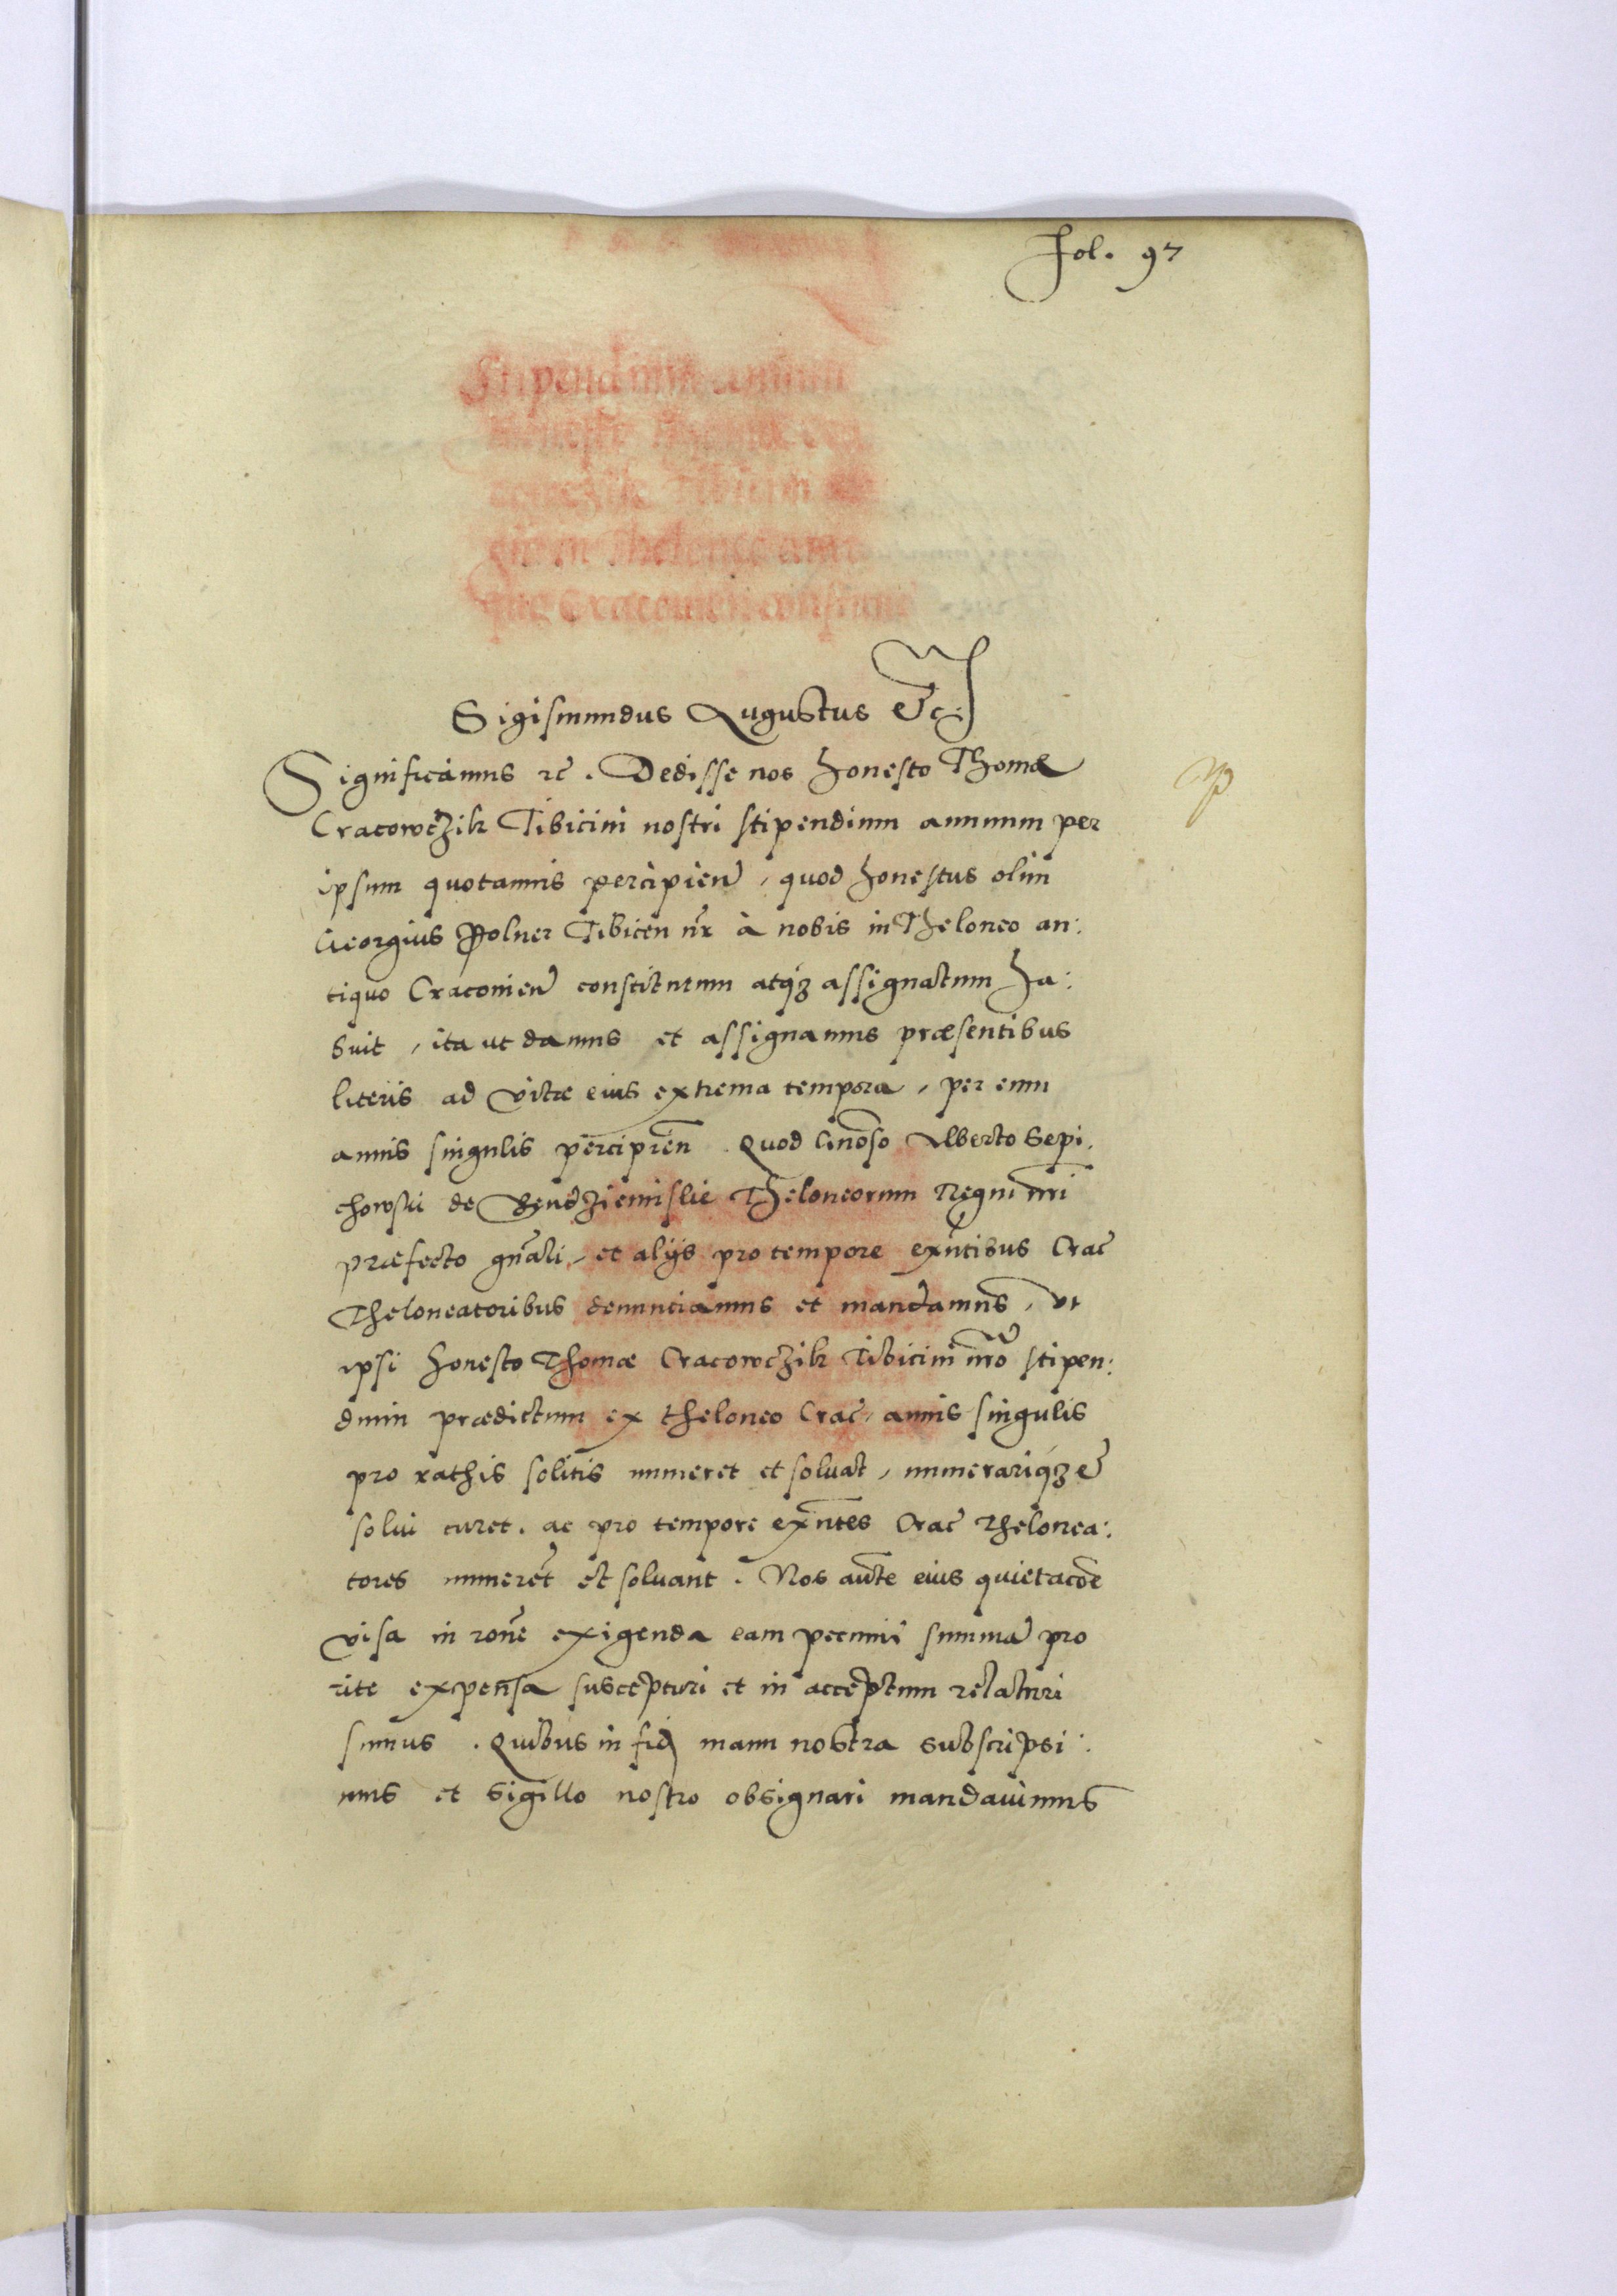 Fol. 97
Stipendium annuum
honesto Thomæ Cra
cowczik Tibicini Re
gio in Theloneo anti
quo Cracouien constitutum
Sigismundus Augustus &c.
Significamus &c. Dedisse nos honesto Thomæ
Cracowczik Tibicini nostri stipendium annuum per
ipsum quotannis percipien̄, quod honestus olim
Georgius Polner Tibicen nr̄ à nobis in Theloneo an:
tiquo Cracouien̄ constitutum atq́ʒ assignatum ha:
buit, ita ut damus et assignamus præsentibus
literis ad vitæ eius extrema tempora, per eum
annis singulis percipien̄. Quod Gn̄oso Alberto Sepi:
chowski de Bendziemislie Theloneorum Regni nr̄i
præfecto gn̄ali, et alijs pro tempore exn̄tibus Crac̄
Theloneatoribus denunciamus et mandamus, vt
ipsi honesto Thomæ Cracowczik Tibicini nr̄o stipen:
dium prædictum ex theloneo Crac̄ annis singulis
pro rathis solitis numeret et soluat, numerariq́ʒ &
solui curet. ac pro tempore exn̄tes Crac̄ Thelonea:
tores numerēt et soluant. Nos aūte eius quietacōe
visa in rōne exigenda eam pecunię summā pro
rite expensa suscepturi et in acceptum relaturi
sumus. Quibus in fidē manu nostra subscripsi:
mus et sigillo nostro obsignari mandauimus